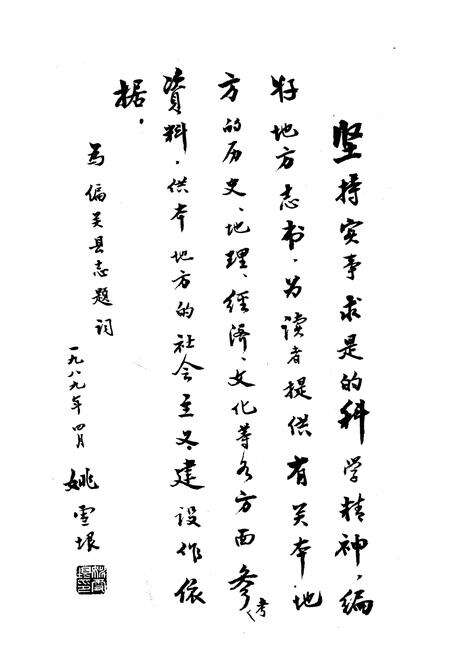 坚持实事求是的科学精神，编
好地方志书，为读者提供有关本地
方的历史、地理、经济、文化等各方面参考
資料，供本地方的社会主义建设作依
据。
为偏关县志题词
一九八九年四月
姚雪垠